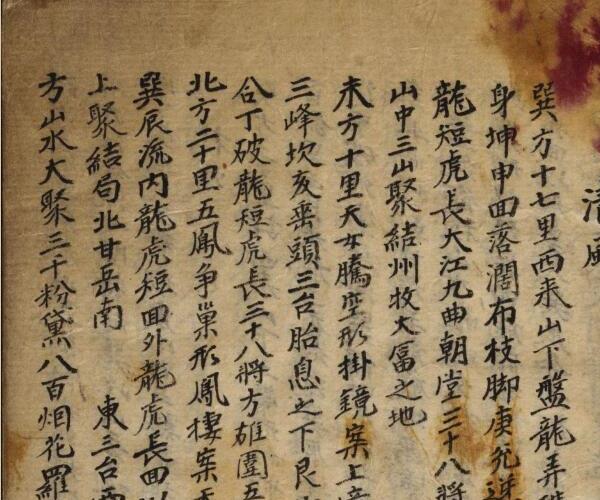 清風
巽方十七里西来山下盤龍弄
身坤申回落濶布枝脚庚兊逆
龍短虎長大江九曲朝堂三十八將
山中三山聚結州牧大富之地
未方十里天女騰空形掛鏡案上
三峰坎亥垂頭三台胎息之下艮
合丁破龍短虎長三十八將方雄圍五
北方二十里五鳳争巢形鳳棲案
巽辰流内龍虎短回外龍虎長回
上聚結局北甘岳南 東三台
方山水大聚三千粉黛八百烟花羅